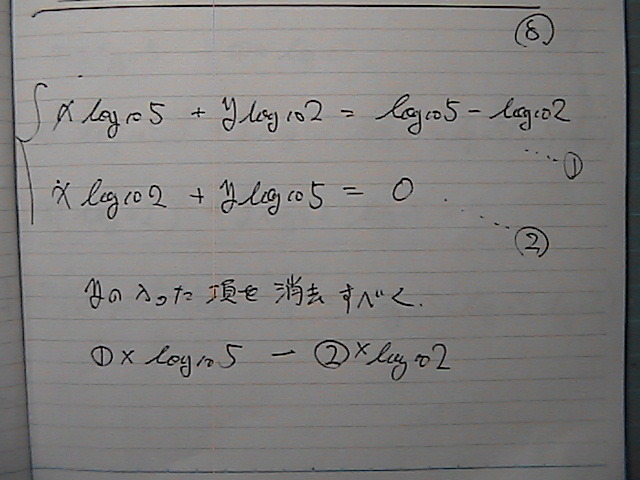 ⑧
x log₁₀5 + y log₁₀2 = log₁₀5 - log₁₀2
····①
x log₁₀2 + y log₁₀5 = 0
····②
yの入った項を消去すべく.
①× log₁₀5 - ②× log₁₀2